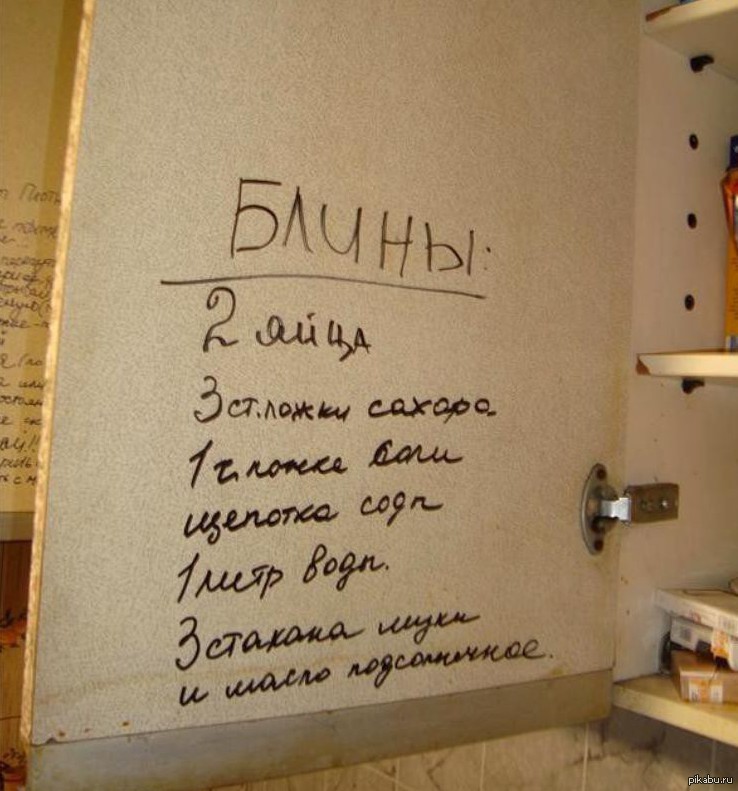 БЛИНЫ:
2 яйца
3 ст.ложки сахара
1 ч.ложка соли
щепотка соды
1 литр воды.
3 стакана муки
и масло подсолнечное.
pikabu.ru